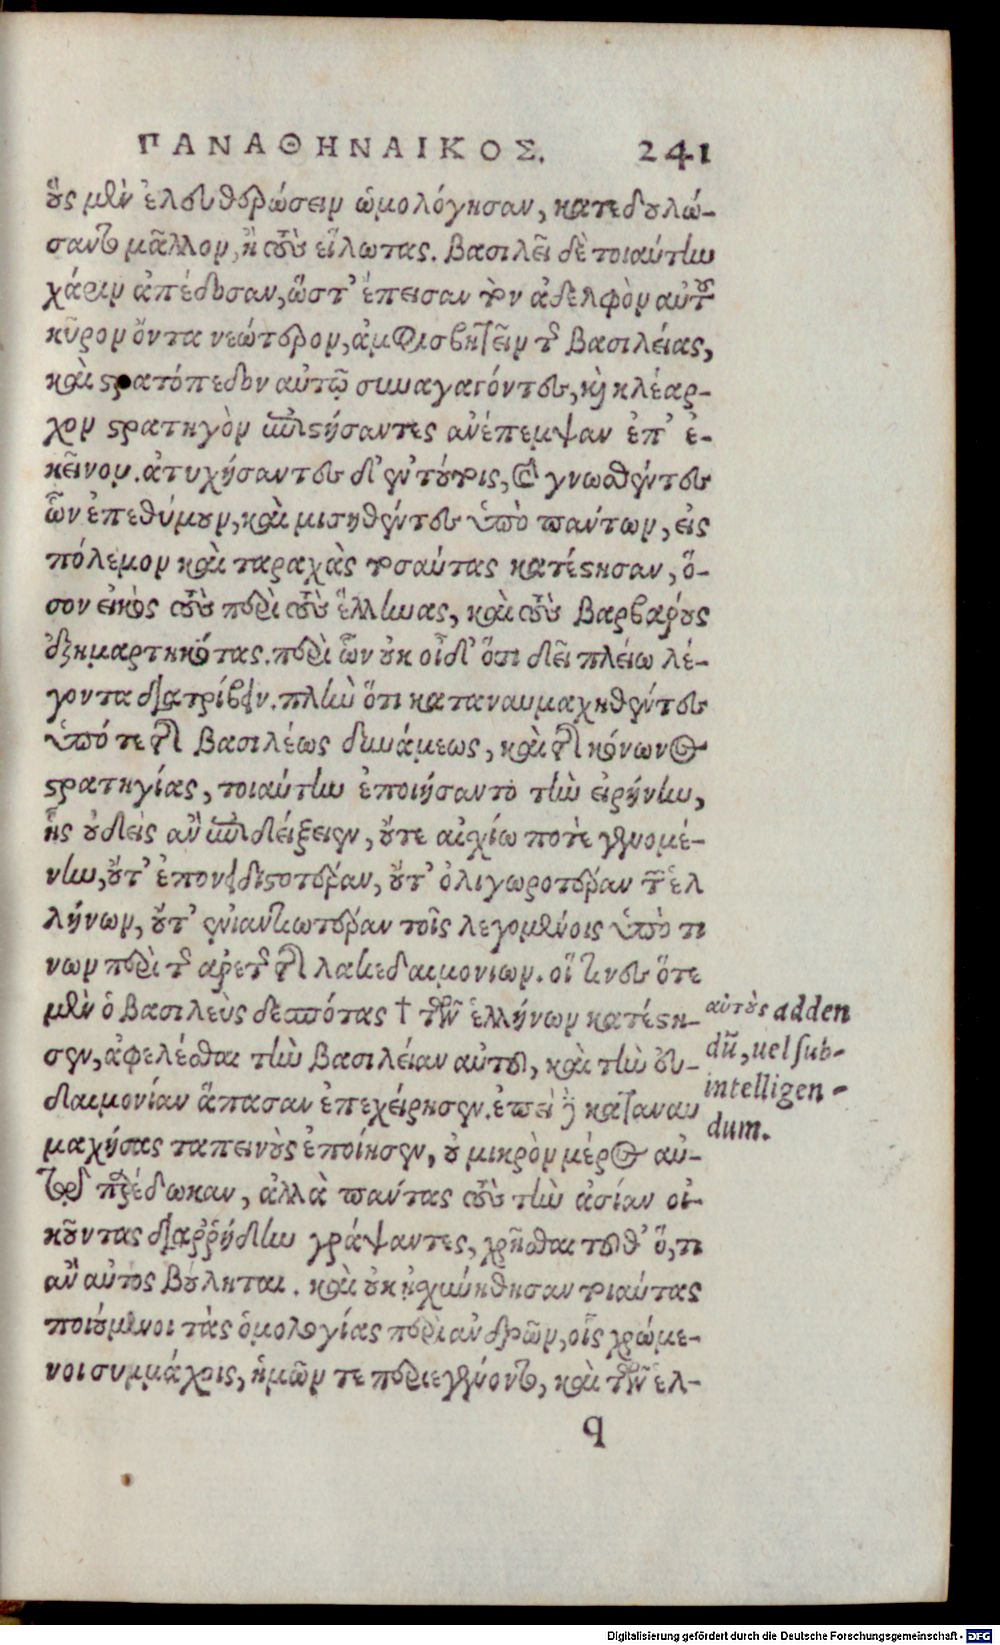 ΠΑΝΑΘΗΝΑΙΚΟΣ. 241
οὓς μὲν ἐλευθερώσειν ὡμολόγησαν, κατεδουλώ-
σαντο μᾶλλον, ἢ τοὺς εἵλωτας. βασιλεῖ δὲ τοιαύτην
χάριν ἀπέδοσαν, ὥστ' ἔπεισαν τὸν ἀδελφὸν αὐτοῦ
κῦρον ὄντα νεώτερον, ἀμφισβητεῖν τῆς βασιλείας,
καὶ στρατόπεδον αὐτῷ συναγαγόντες, καὶ κλέαρ-
χον στρατηγὸν ἐπιστήσαντες ἀνέπεμψαν ἐπ' ἐ-
κεῖνον. ἀτυχήσαντες δ' ἐν τούτοις, καὶ γνωσθέντες
ὧν ἐπεθύμουν, καὶ μισηθέντες ὑπὸ πάντων, εἰς
πόλεμον καὶ ταραχὰς τοσαύτας κατέστησαν, ὅ-
σον εἰκὸς τοὺς περὶ τοὺς ἕλληνας, καὶ τοὺς βαρβάρους
ἐξημαρτηκότας. περὶ ὧν οὐκ οἶδ' ὅτι δεῖ πλείω λέ-
γοντα διατρίβειν. πλὴν ὅτι καταναυμαχηθέντες
ὑπό τε τῆς βασιλέως δυνάμεως, καὶ τῆς κόνωνος
στρατηγίας, τοιαύτην ἐποιήσαντο τὴν εἰρήνην,
ἧς οὐδεὶς ἂν ἐπιδείξειεν, οὔτε αἰχίω ποτὲ γενομέ-
νην, οὔτ' ἐπονειδιστοτέραν, οὔτ' ὀλιγωροτέραν τῶν ἑλ
λήνων, οὔτ' ἐναντιωτέραν τοῖς λεγομένοις ὑπό τι
νων περὶ τῆς ἀρετῆς τῆς λακεδαιμονίων. οἵτινες ὅτε
μὲν ὁ βασιλεὺς δεσπότας † τῶν ἑλλήνων κατέστη-
σεν, ἀφελέσθαι τὴν βασιλείαν αὐτοῦ, καὶ τὴν εὐ-
δαιμονίαν ἅπασαν ἐπεχείρησεν. ἐπεὶ δὲ καταναυ
μαχήσας ταπεινοὺς ἐποίησεν, οὐ μικρὸν μέρος αὐ-
τῷ παρέδωκαν, ἀλλὰ πάντας τοὺς τὴν ἀσίαν οἰ-
κοῦντας διαῤῥήδην γράψαντες, χρῆσθαι τοῦθ' ὅ,τι
ἂν αὐτὸς βούληται. καὶ οὐκ ᾐσχύνθησαν τοιαύτας
ποιούμενοι τὰς ὁμολογίας περὶ ἀνδρῶν, οἷς χρώμε-
νοι συμμάχοις, ἡμῶν τε περιεγένοντο, καὶ τῶν ἑλ-
q
αὐτοὺς adden
dū, uel sub-
intelligen-
dum.
Digitalisierung gefördert durch die Deutsche Forschungsgemeinschaft - DFG